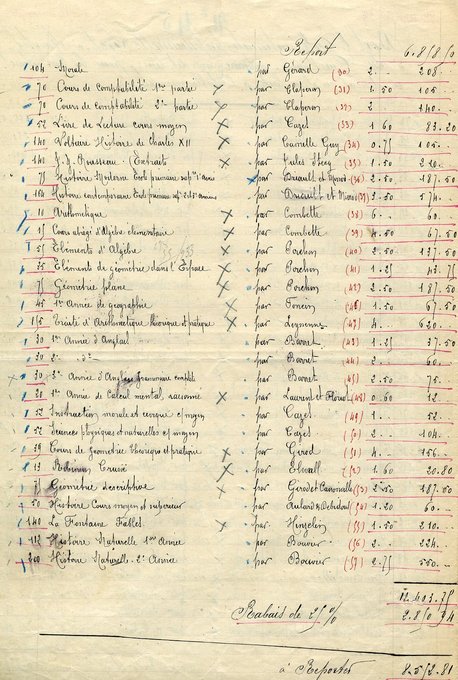 Report 6.818,10
104 Morale par Gérard (30) 2.. 208..
70 Cours de comptabilité 1re partie x par Claperon (31) 1.50 105..
70 Cours de comptabilité 2e partie x par Claperon (32) 2 140..
52 Livre de Lecture cours moyen x par Cazes (33) 1 60 83.20
140 Voltaire Histoire de Charles XII x par Camille Guy (34) 0.75 105..
140 J. J. Rousseau (Extraits) x par (35) 1.50 210..
75 Histoire Moderne Ecole primaire supre 1re année par Driault et Monod (36) 2.50 187.50
164 Histoire contemporaine Ecole primaire sup. années par Driault et Monod (37) 3.50 574..
10 Arithmétique x par Combette (38) 6.. 60..
15 Cours abrégé d'Algèbre élémentaire x par Combette (39) 4.50 67.50
55 Eléments d'Algèbre x par Porchon (40) 2.50 137.50
35 Eléments de géométrie dans l'Espace x par Porchon (41) 1.25 43.75
75 Géométrie plane x par Porchon (42) 2.50 187.50
45 1re Année de Géographie x par Foncin 1.50 67.50
155 Traité d'Arithmétique théorique et pratique x par 4... 620..
30 1re Année d'Anglais par Barret (43) 1.25 37.50
30 2e d° par Barret (44) 2.. 60..
30 3e Année d'Anglais grammaire complète par Barret (45) 2.50 75..
20 1re Année de Calcul mental raisonné x par Laurent et (48) 0.60 12..
52 Instruction morale et civique c/ moyen par Cazes (49) 1... 52..
52 Sciences physiques et naturelles c/ moyen par Cazes (50) 2... 104..
39 Cours de Géométrie théorique et pratique x par Gérod (51) 4... 156..
13 Robinson Crusoé x par (52) 1.60 20.80
75 Géométrie descriptive x par Gérod et (53) 2.50 187.50
50 Histoire Cours moyen et supérieur par Aulard & Debidour (54) 1.20 60..
140 La Fontaine Fables x par Hinzelin (55) 1.50 210..
112 Histoire Naturelle 1re Année par Bouvier (56) 2... 224..
200 Histoire Naturelle 2e Année par Bouvier (57) 2.75 550..
12.403.75
Rabais de 25 % 2.850 94
à Reporter 8.552.81